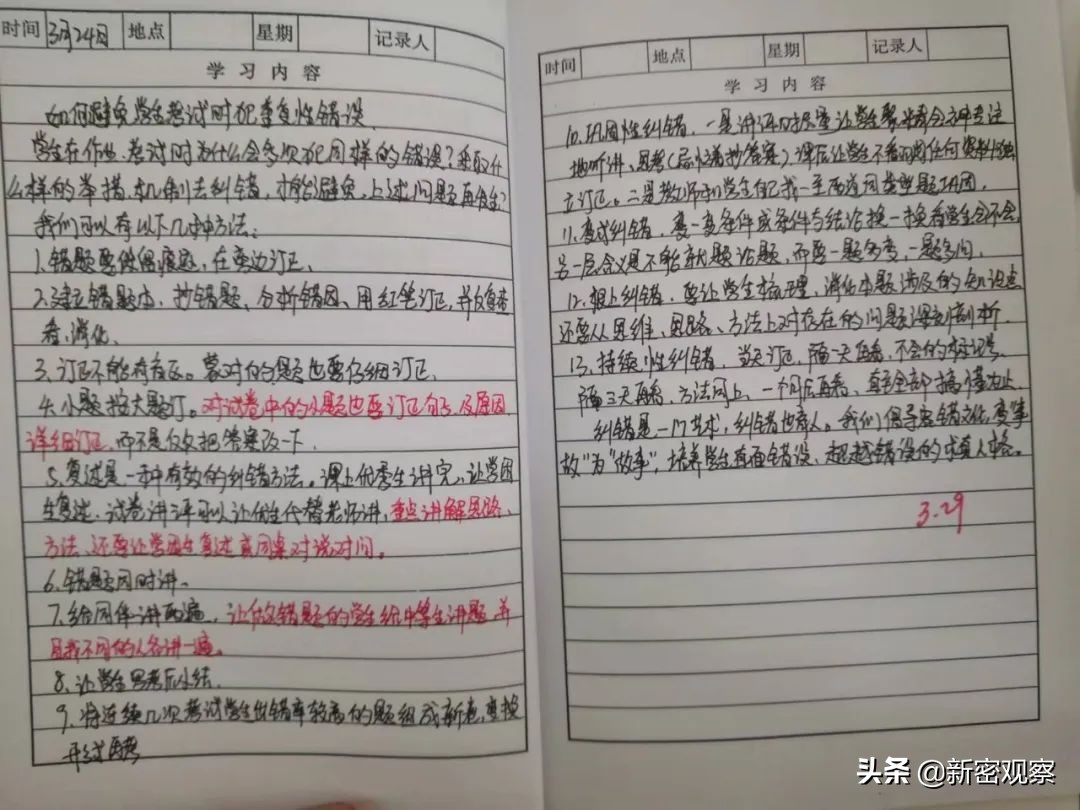 时间 3月24日 地点 星期 记录人
学习内容
如何避免学生考试时犯重复性错误
学生在作业、考试时为什么会多次犯同样的错误?采取什
么样的举措、机制去纠错,才能避免上述问题再发生?
我们可以有以下几种方法:
1、错题要保留痕迹,在旁边订正、
2、建立错题本,抄错题、分析错因、用红笔订正,并反复查
看,消化、
3、订正不能有盲区。蒙对的题也要仔细订正、
4、小题按大题订。对试卷中的小题也要订正 及原因
详细订正,而不是仅仅把答案改一下、
5、复述是一种有效的纠错方法。课上优秀生讲完,让学困
生复述,试卷讲评可以让优生代替老师讲,重点讲解思路、
方法、还要让学困生复述或同桌对说对问。
6、错题 时讲。
7、给同伴讲两遍,让做错题的学生给中等生讲题,并
且找不同的人各讲一遍。
8、让学生思考后小结、
9、将连续几次考试学生出错率较高的题组成新卷,变换
形式再考
时间 地点 星期 记录人
学习内容
10、巩固性纠错,一是讲评时尽量让学生聚精会神专注
地听讲、思考( 抄答案),课后让学生不看 任何资料独
立订正。二是教师和学生自己找一至两道同类型题巩固。
11、变式纠错,变一变条件或条件与结论换一换看学生会不会,
另一层含义是不能就题论题,而要一题多变,一题多问,
12、根上纠错,要让学生梳理、消化本题涉及的知识点
还要从思维、思路、方法上对存在的问题深刻剖析、
13、持续性纠错,当天订正,隔一天再看,不会的标记号,
隔三天再看,方法同上,一个周后再看,直至全部搞懂为止、
纠错是一门艺术,纠错也育人。我们倡导容错文化,变"事
故"为"故事",培养学生直面错误、超越错误的 人格。
3.29
头条 @新密观察